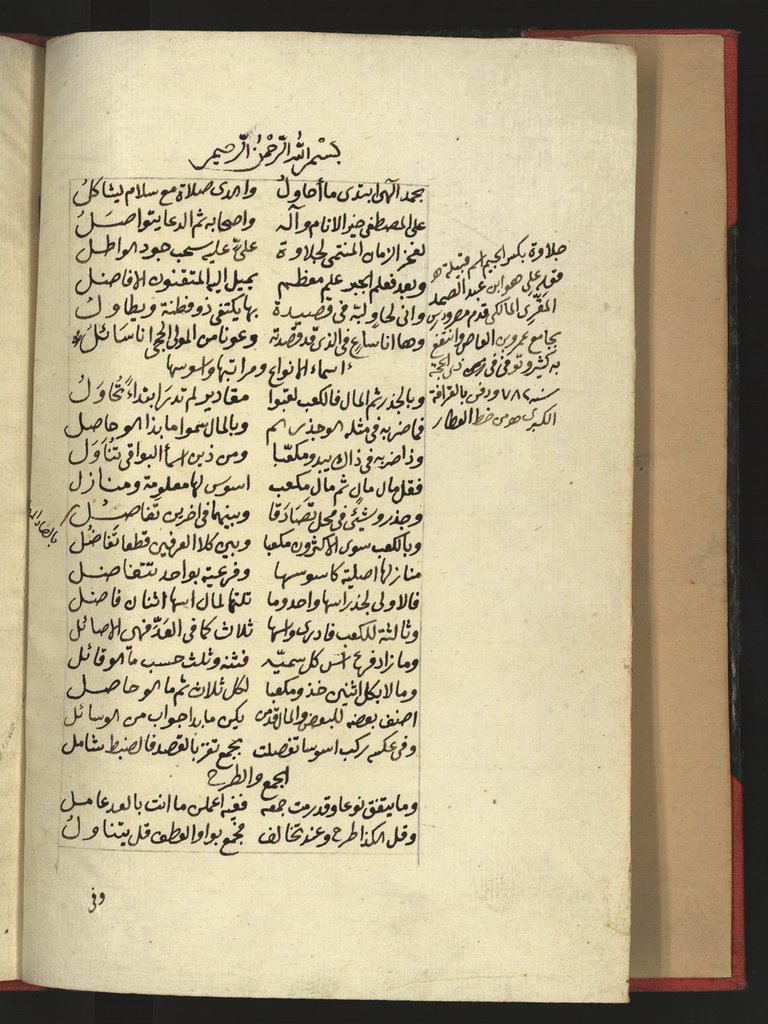 بسم الله الرحمن الرحيم
بحمد الهي ابتدي ما أحاول وأهدي صلاة مع سلام يشاكل
على المصطفى خير الانام وآله واصحابه ثم الدعا يتواصل
لفخر الزمان المنتمي لجلاوة علي عليه سحب جود الواطل
وبعد فعلم الجبر علم معظم يميل اليه المتقنون الافاضل
واني لحاو لبه في قصيدة بها يكتفي ذو فطنة ويطاول
وها انا سارع في الذي قد قصدته وعونا من المولى الحجى انا سائل
اسماء الانواع ومراتبها واسوسها
وبالجذر ثم المال فالكعب لقبوا مقادير لم تدر ابتداء تحاول
فما ضربه في مثله الجذر اسم وبالمال سموا ما بذا الو حاصل
وذا ضربه في ذاك يبدو مكعبا ومن ذين اسأ البواقي تناول
فقل مال مال ثم مال مكعب اسوس لها معلومة ومنازل
وجذر وشيئ في محل تصادقا وبينهما في اخرين تفاصل
وبالكعب سوى الاكثرون مكعبا وبين كلا العرفين قطعا تفاضل
منازلها اصلية كاسوسها وفرعية بواحد تتفاضل
فالاولى لجذر اسها واحد وما تلتها لمال اسها اثنان فاضل
وثالثة للكعب فادرى واسها ثلاث كما في العد فهي الاصائل
وما زاد فرع اس كل سميه فثنه وثلث حسب ما الوقائل
ومالا بكل اثنين خذ ومكعبا لكل ثلاث ثم ما الو حاصل
اضف بعضه للبعض والمال قدمن يكن ما بدا جواب من الوسائل
وفي عكسه ركب اسوسا تفصلت بجمع تفز بالقصد فالضبط شامل
الجمع والطرح
وما يتفق نوعا وقد رمت جمعه ففيه اعملن ما انت بالعد عامل
وقل الكذا طرح وعند تخالف فجمع بواو العطف قل يتناول
وفي
جلاوة بكسر الجيم اسم قبيلة
فقوله علي هو ابن عبد الصمد
المقري المالكي قدم مصر ودرس
بجامع عمرو بن العاص وانتفع
به كثير وتوفي في ذي الحجة
سنه ٧٨٢ ودفن بالقرافة
الكبرى هو من خط العطار